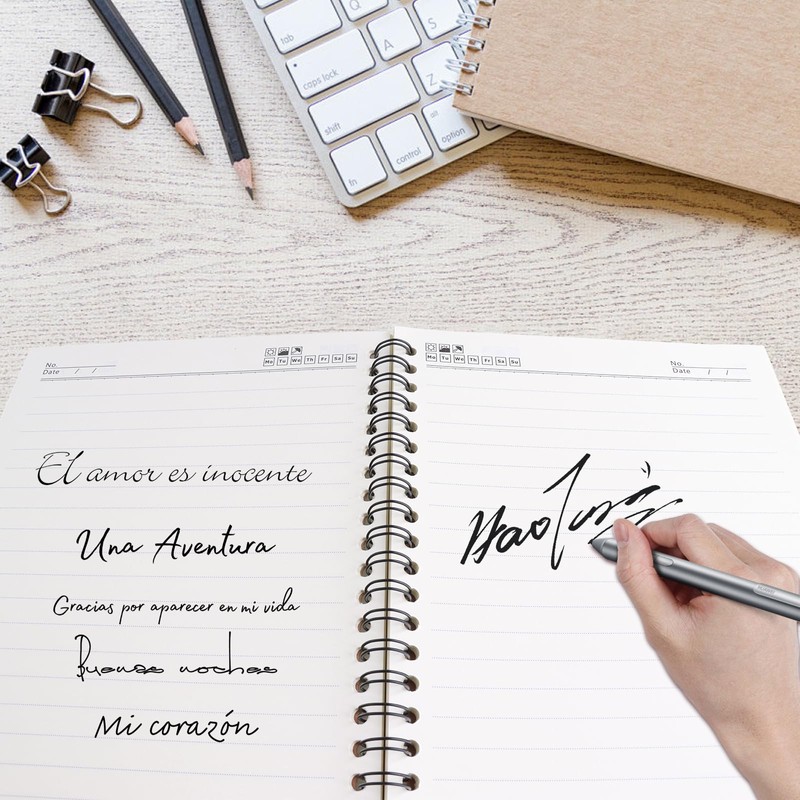 Q
tab
A S
caps lock
Z
shift
alt
option
control
fn
No.
Date / /
Mo Tu We Th Fr Sa Su
El amor es inocente
Una Aventura
Gracias por aparecer en mi vida
Buenas noches
Mi corazón
Mo Tu We Th Fr Sa Su
No.
Date / /